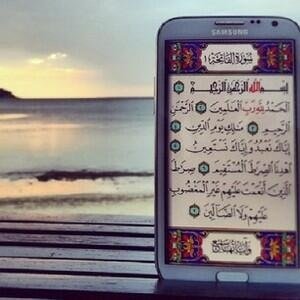 SAMSUNG
سُورَةُ الْفَاتِحَةِ ١
بِسْمِ اللَّهِ الرَّحْمَٰنِ الرَّحِيمِ
الْحَمْدُ لِلَّهِ رَبِّ الْعَٰلَمِينَ الرَّحْمَٰنِ
الرَّحِيمِ مَٰلِكِ يَوْمِ الدِّينِ
إِيَّاكَ نَعْبُدُ وَإِيَّاكَ نَسْتَعِينُ
اهْدِنَا الصِّرَٰطَ الْمُسْتَقِيمَ صِرَٰطَ
الَّذِينَ أَنْعَمْتَ عَلَيْهِمْ غَيْرِ الْمَغْضُوبِ
عَلَيْهِمْ وَلَا الضَّالِّينَ